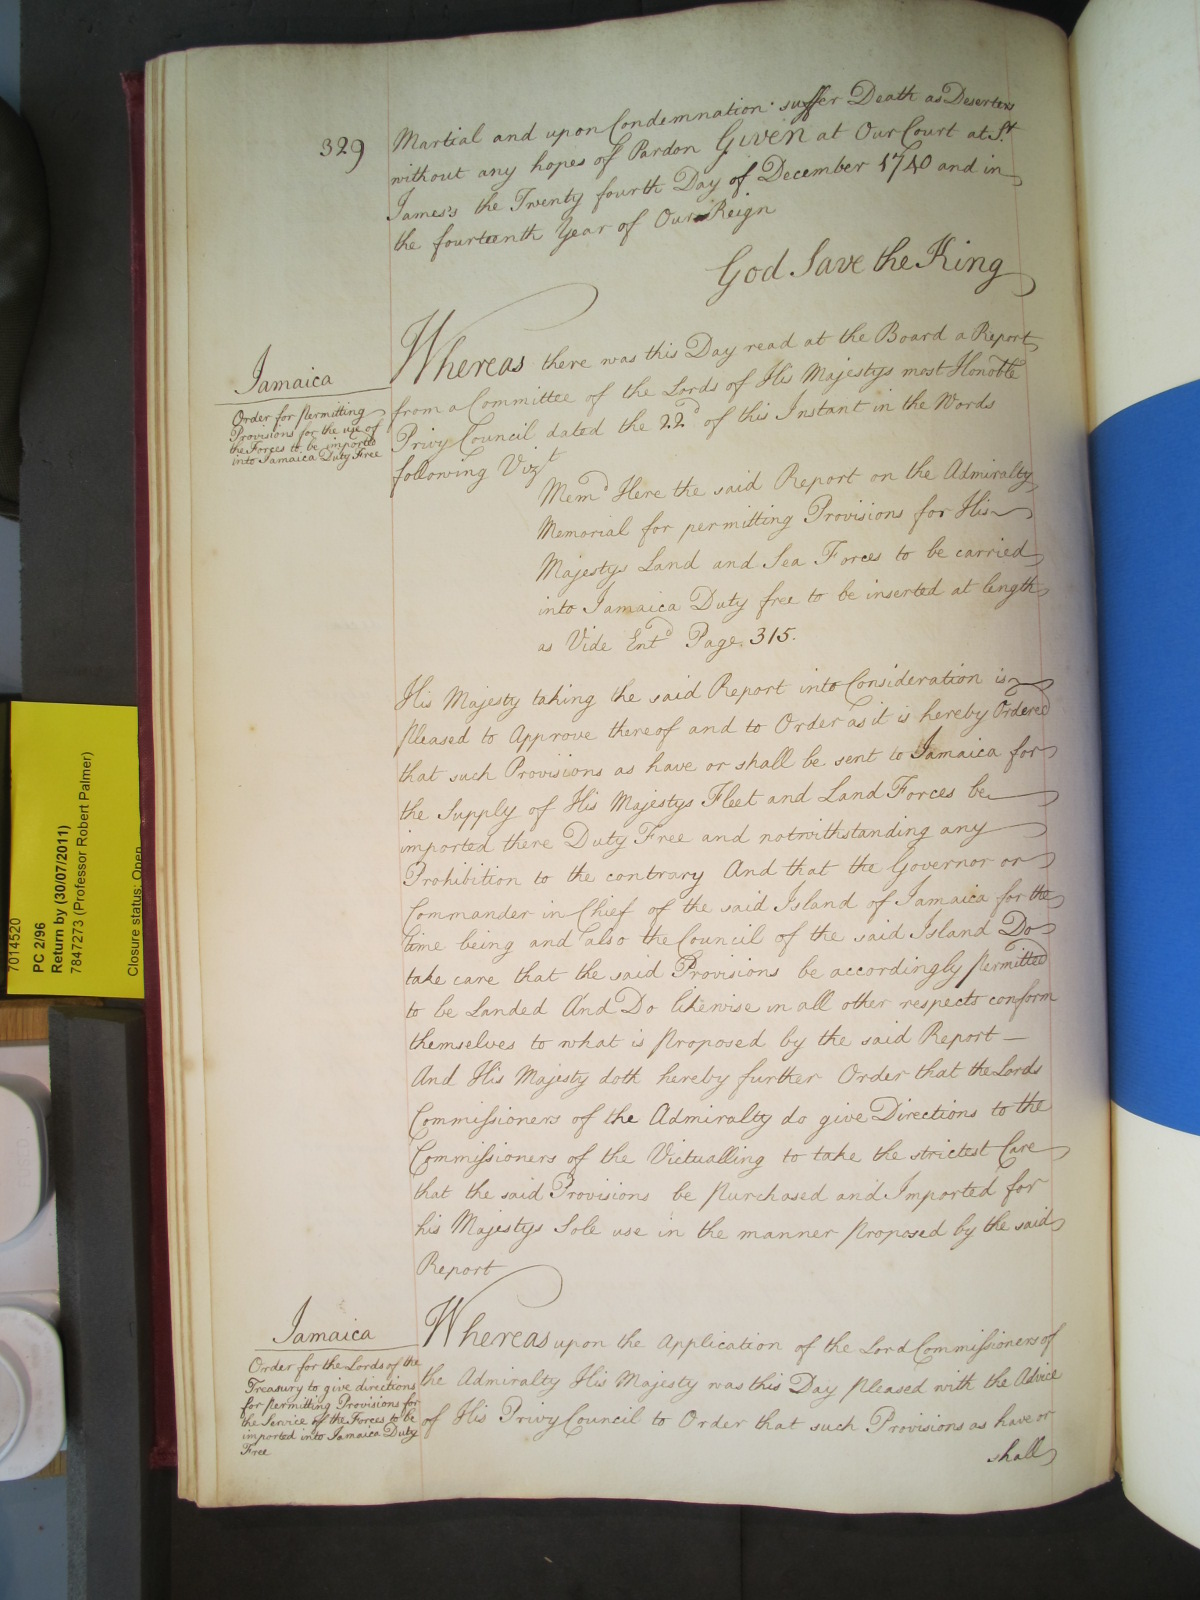 329
Martial and upon Condemnation suffer Death as Deserters
without any hopes of Pardon Given at Our Court at St
James's the Twenty fourth Day of December 1740 and in
the fourteenth Year of Our Reign
God Save the King
Jamaica
Order for permitting
Provisions for the use of
the Forces to be imported
into Jamaica Duty Free
Whereas there was this Day read at the Board a Report
from a Committee of the Lords of His Majestys most Honoble
Privy Council dated the 22d of this Instant in the Words
following Vizt
Memd Here the said Report on the Admiralty
Memorial for permitting Provisions for His
Majestys Land and Sea Forces to be carried
into Jamaica Duty free to be inserted at length
as Vide Entd Page. 315.
His Majesty taking the said Report into Consideration is
pleased to Approve thereof and to Order as it is hereby Ordered
that such Provisions as have or shall be sent to Jamaica for
the Supply of His Majestys Fleet and Land Forces be
imported there Duty Free and notwithstanding any
Prohibition to the contrary And that the Governor or
Commander in Chief of the said Island of Jamaica for the
time being and also the Council of the said Island Do
take care that the said Provisions be accordingly permitted
to be Landed And Do likewise in all other respects conform
themselves to what is proposed by the said Report —
And His Majesty doth hereby further Order that the Lords
Commissioners of the Admiralty do give Directions to the
Commissioners of the Victualling to take the strictest Care
that the said Provisions be purchased and Imported for
his Majestys Sole use in the manner proposed by the said
Report
Jamaica
Order for the Lords of the
Treasury to give directions
for permitting Provisions for
the Service of the Forces to be
imported into Jamaica Duty
Free
Whereas upon the Application of the Lord Commissioners of
the Admiralty His Majesty was this Day pleased with the Advice
of His Privy Council to Order that such Provisions as have or
shall
7014520
PC 2/96
Return by (30/07/2011)
7847273 (Professor Robert Palmer)
Closure status: Open